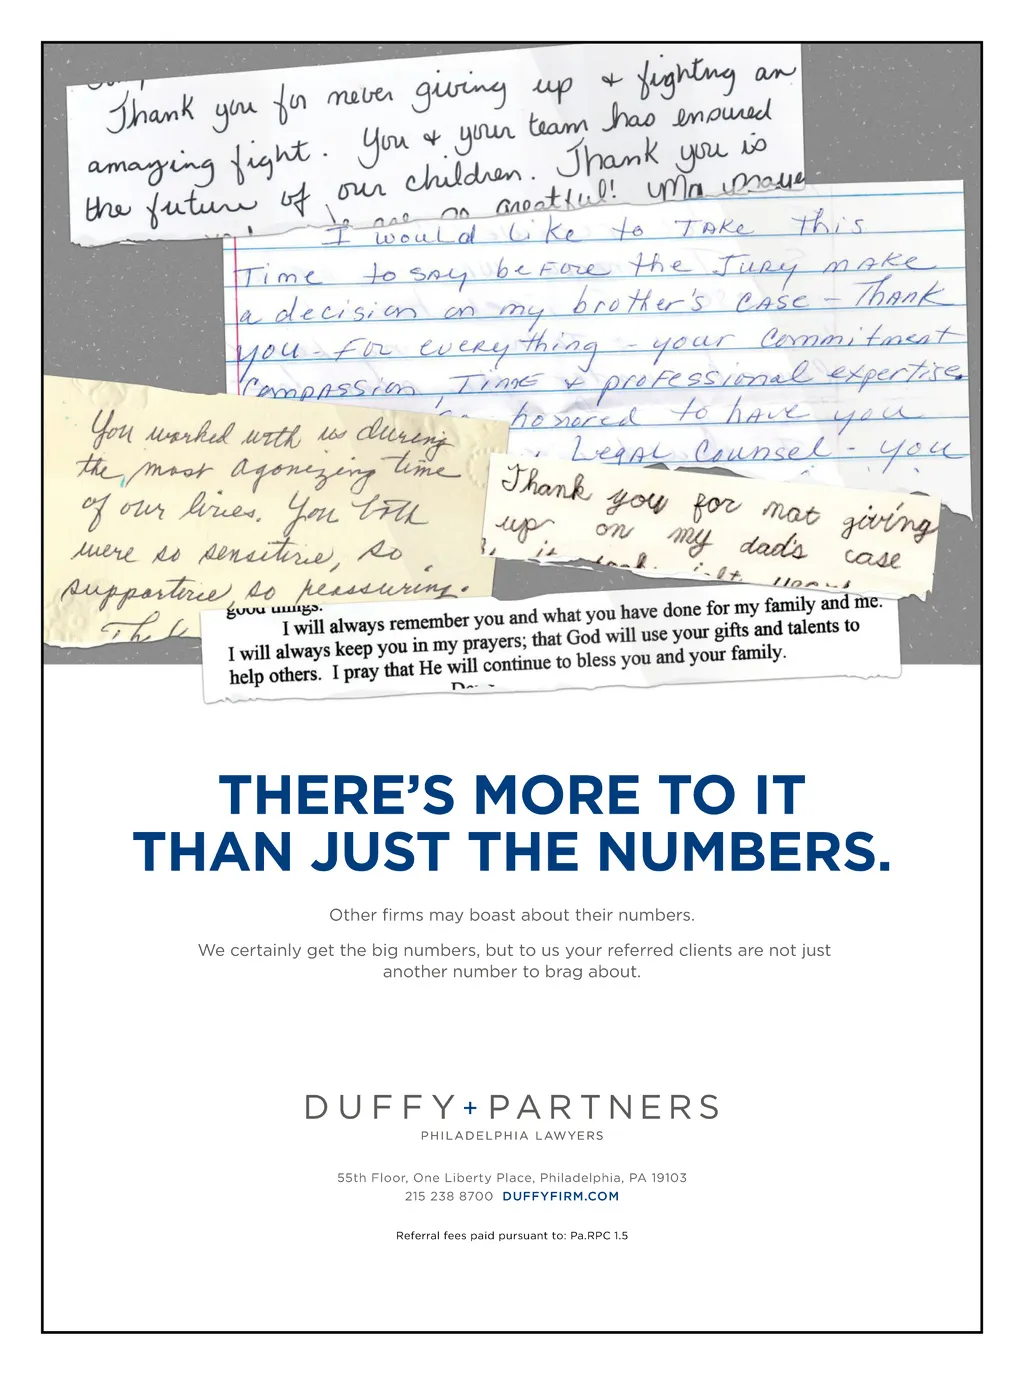 Thank you for never giving up & fighting an
amazing fight. You & your team has ensured
the future of our children. Thank you is
are so greatful!
I would like to TAKE this
Time to SAY before the Jury MAKE
a decision on my brother's CASE - THANK
you - For everything - your commitment
Compassion, TIME & professional expertise.
honored to have you
Legal Counsel - YOU
You worked with us during
the most agonizing time
of our lives. You both
were so sensitive, so
supportive so reassuring.
Thank you for not giving
up on my dad's case
good things.
I will always remember you and what you have done for my family and me.
I will always keep you in my prayers; that God will use your gifts and talents to
help others. I pray that He will continue to bless you and your family.
THERE'S MORE TO IT
THAN JUST THE NUMBERS.
Other firms may boast about their numbers.
We certainly get the big numbers, but to us your referred clients are not just
another number to brag about.
DUFFY+PARTNERS
PHILADELPHIA LAWYERS
55th Floor, One Liberty Place, Philadelphia, PA 19103
215 238 8700 DUFFYFIRM.COM
Referral fees paid pursuant to: Pa.RPC 1.5